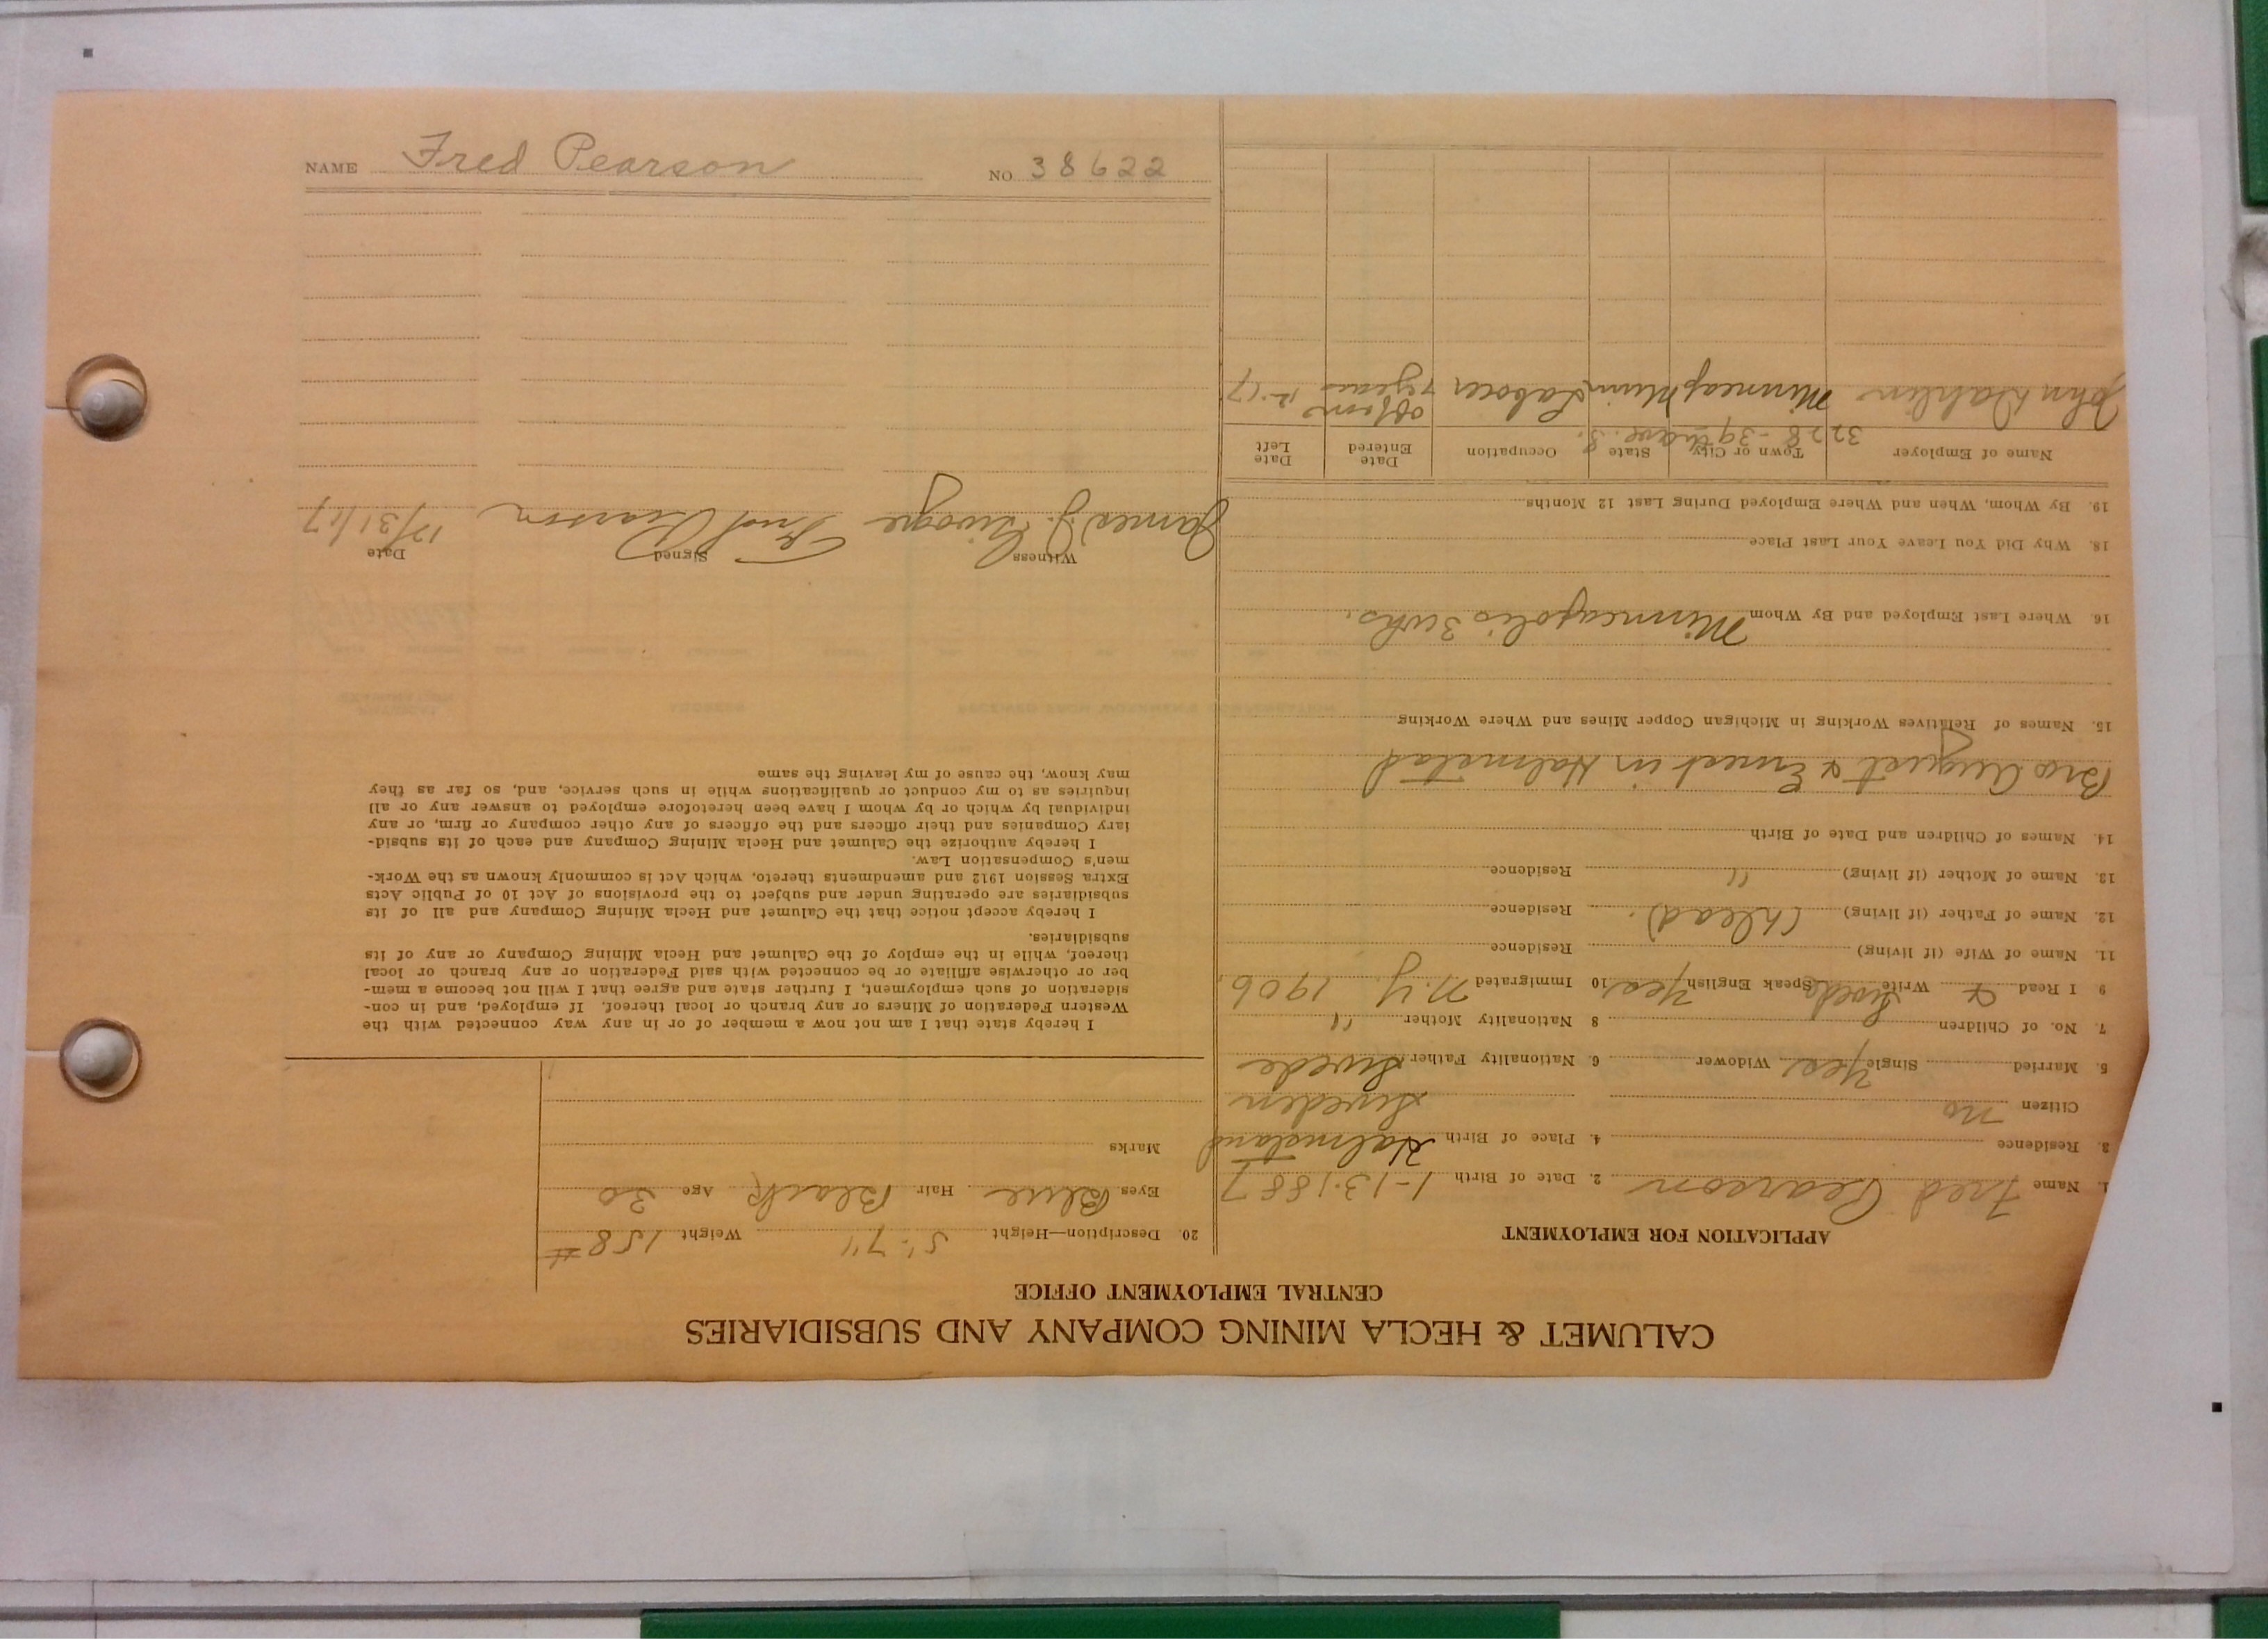 CALUMET & HECLA MINING COMPANY AND SUBSIDIARIES
CENTRAL EMPLOYMENT OFFICE
APPLICATION FOR EMPLOYMENT
1. Name Fred Pearson 2. Date of Birth 1-13-1887
3. Residence 4. Place of Birth Halmstad
Citizen no Sweden
5. Married Single Yes Widower 6. Nationality Father Swede
7. No. of Children 8 Nationality Mother "
9 I Read & Write Swede Speak English Yes 10 Immigrated N.Y. 1906.
11. Name of Wife (if living) Residence
12. Name of Father (if living) (dead). Residence
13. Name of Mother (if living) " Residence
14. Names of Children and Date of Birth
Bros August & Ernest in Halmstad
15. Names of Relatives Working in Michigan Copper Mines and Where Working
16. Where Last Employed and By Whom Minneapolis 3 wks.
18. Why Did You Leave Your Last Place
19. By Whom, When and Where Employed During Last 12 Months
Name of Employer Town or City State Occupation Date Entered Date Left
3228-39th ave. S.
John Dahlin Minneap Minn Laborer off on 7 years 12-17
20. Description—Height 5'.7" Weight 158 #
Eyes Blue Hair Black Age 30
Marks
I hereby state that I am not now a member of or in any way connected with the
Western Federation of Miners or any branch or local thereof. If employed, and in con-
sideration of such employment, I further state and agree that I will not become a mem-
ber or otherwise affiliate or be connected with said Federation or any branch or local
thereof, while in the employ of the Calumet and Hecla Mining Company or any of its
subsidiaries.
I hereby accept notice that the Calumet and Hecla Mining Company and all of its
subsidiaries are operating under and subject to the provisions of Act 10 of Public Acts
Extra Session 1912 and amendments thereto, which Act is commonly known as the Work-
men's Compensation Law.
I hereby authorize the Calumet and Hecla Mining Company and each of its subsid-
iary Companies and their officers and the officers of any other company or firm, or any
individual by which or by whom I have been heretofore employed to answer any or all
inquiries as to my conduct or qualifications while in such service, and, so far as they
may know, the cause of my leaving the same
Witness Signed Date
James J. Fred Pearson 12/31/17
NAME Fred Pearson NO 38622